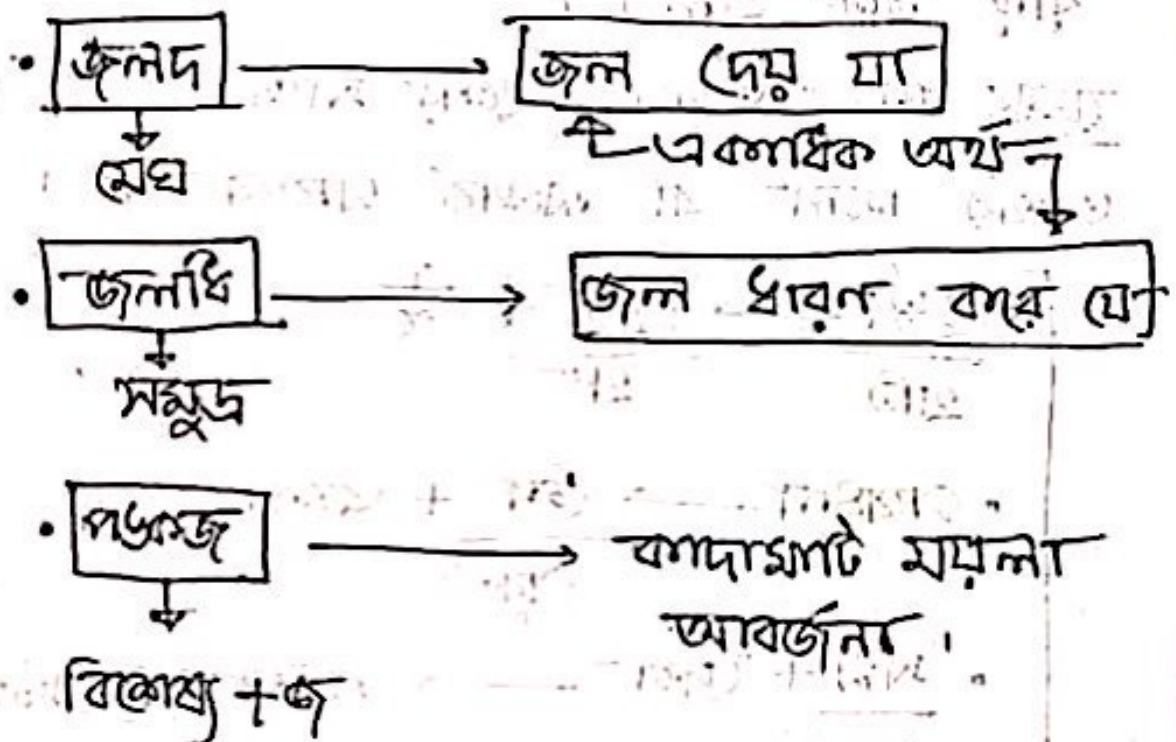 • জলদ → জল দেয় যা
মেঘ
একাধিক অর্থ
• জলধি → জল ধারণ করে যে
সমুদ্র
• পঙ্কজ → কাদামাটি ময়লা
আবর্জনা ।
বিশেষ্য + জ